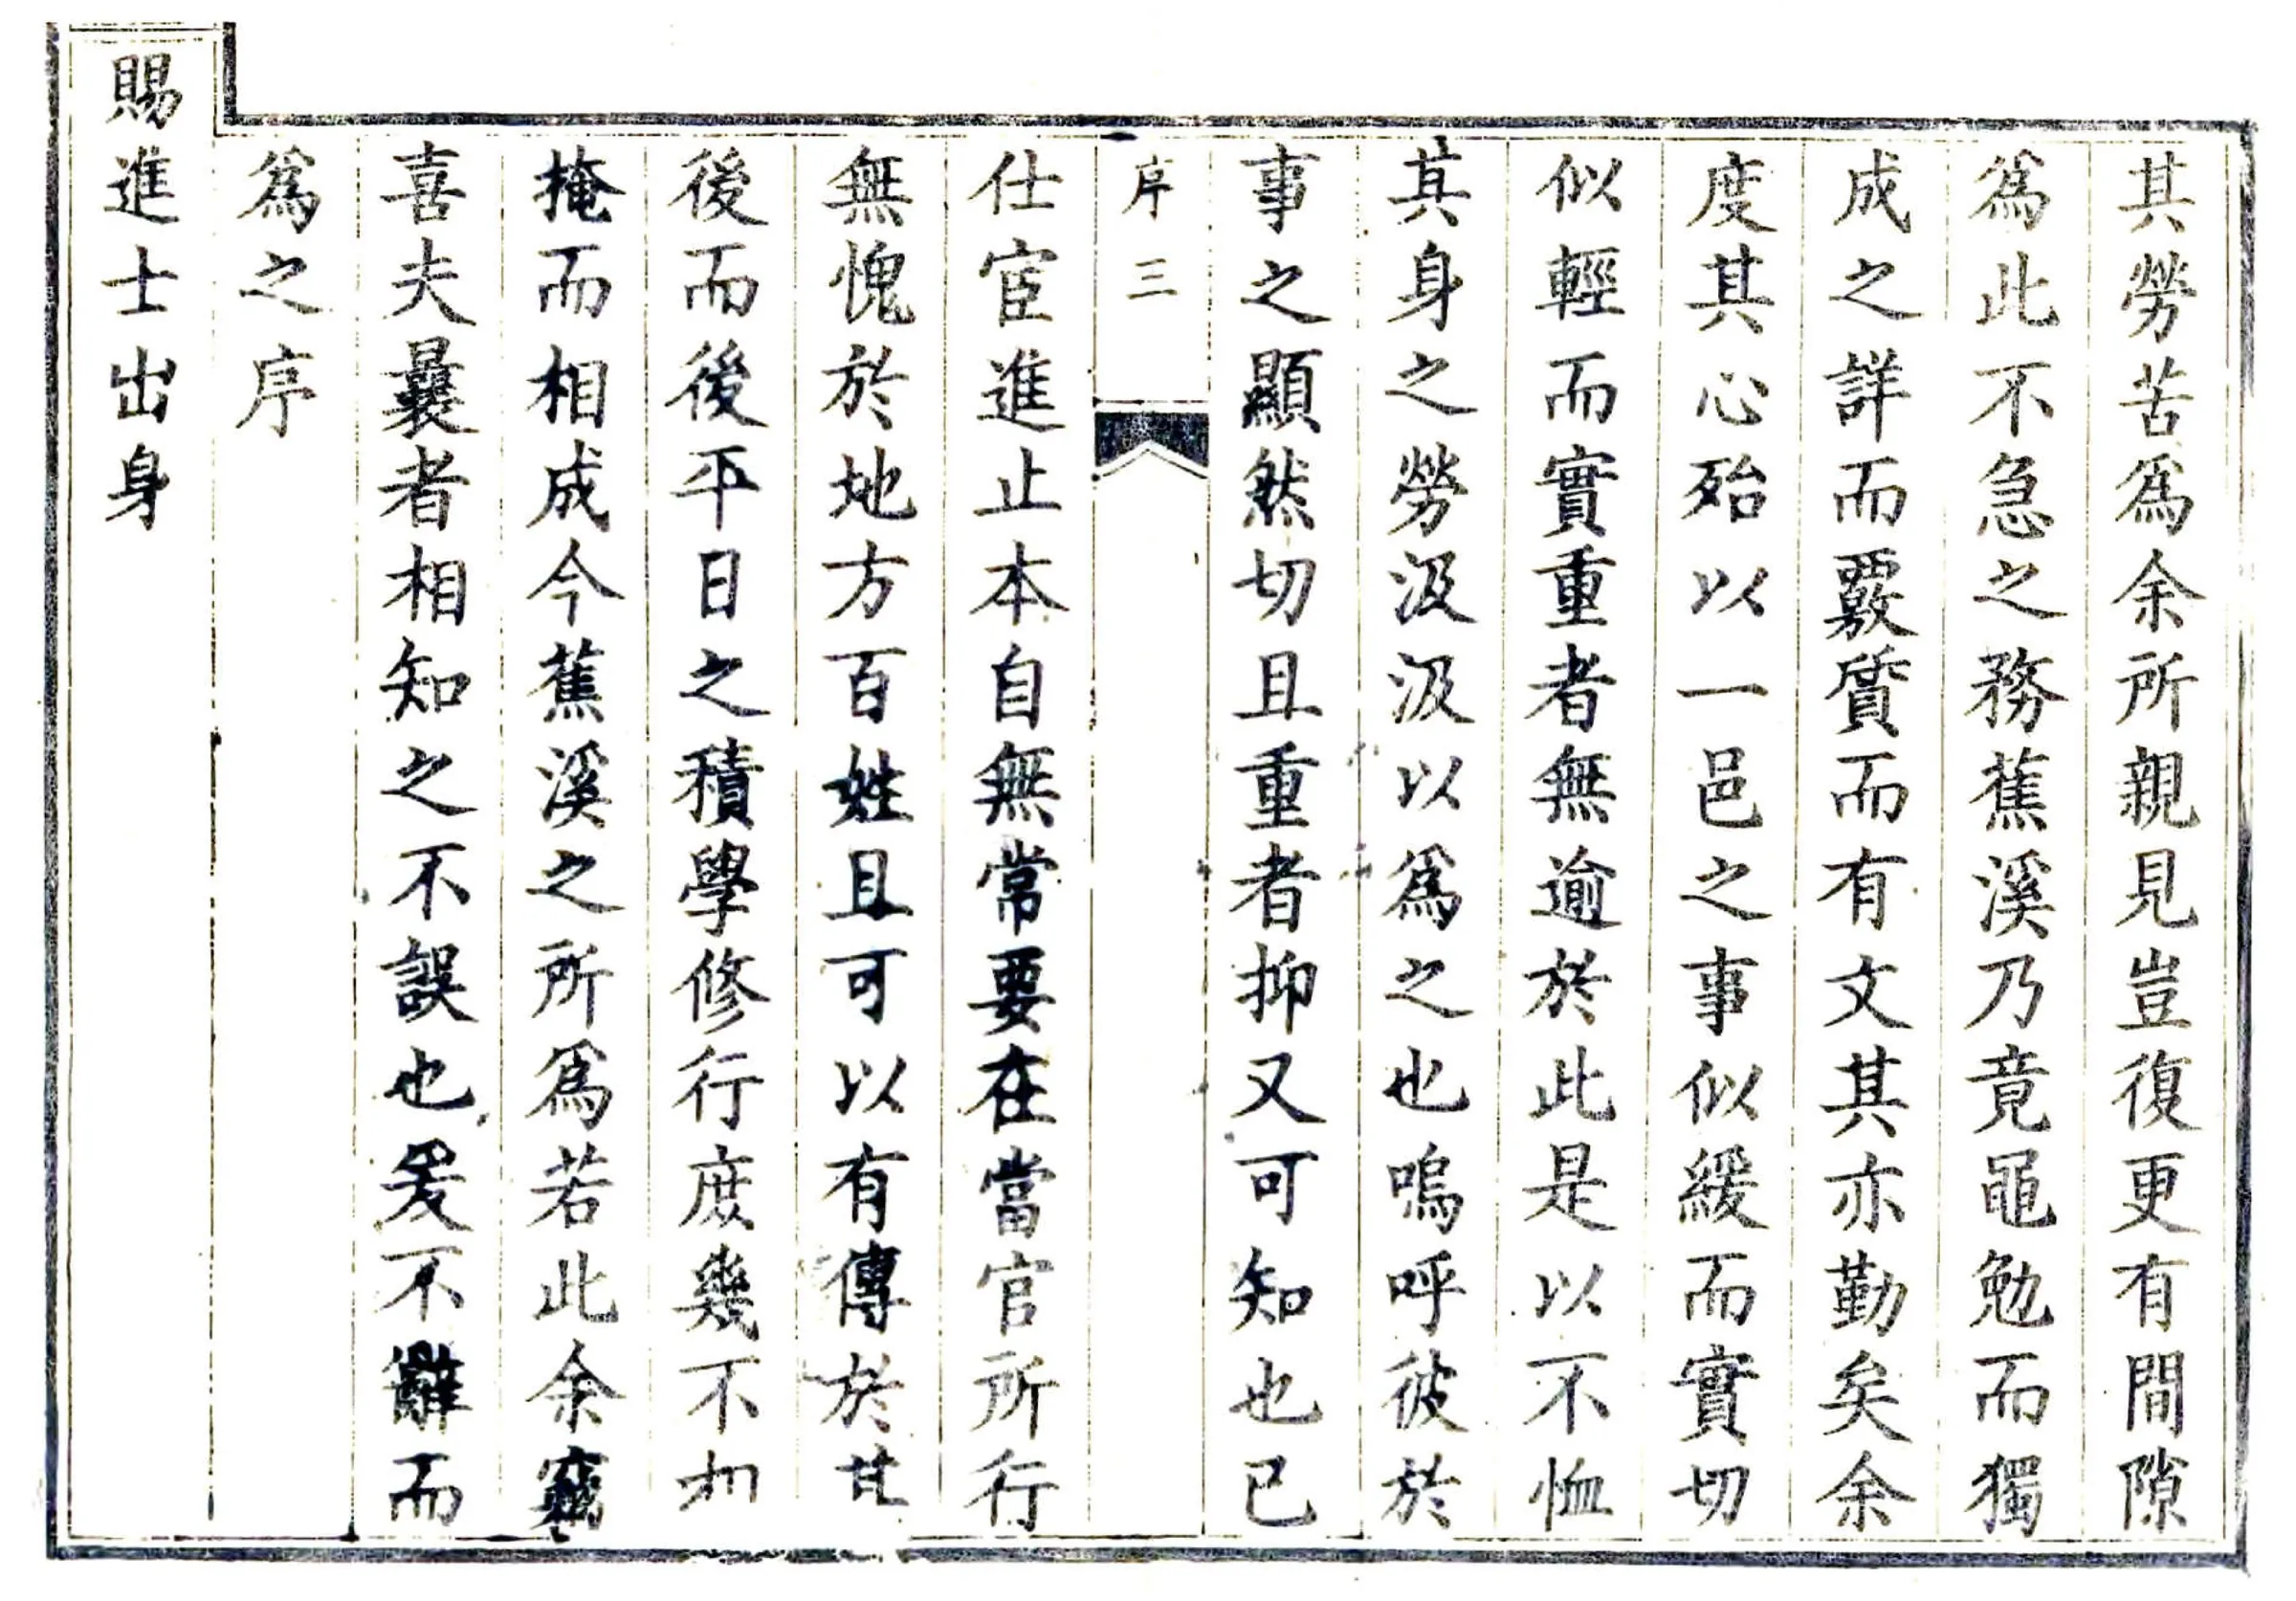 其勞苦爲余所親見豈復更有間隙
爲此不急之務蕉溪乃竟黽勉而獨
成之詳而覈質而有文其亦勤矣余
度其心殆以一邑之事似緩而實切
似輕而實重者無逾於此是以不恤
其身之勞汲汲以爲之也嗚呼彼於
事之顯然切且重者抑又可知也已
序 三
仕宦進止本自無常要在當官所行
無愧於地方百姓且可以有傳於其
後而後平日之積學修行庶幾不
掩而相成今蕉溪之所爲若此余竊
喜夫曩者相知之不誤也爰不辭而
爲之序
賜進士出身